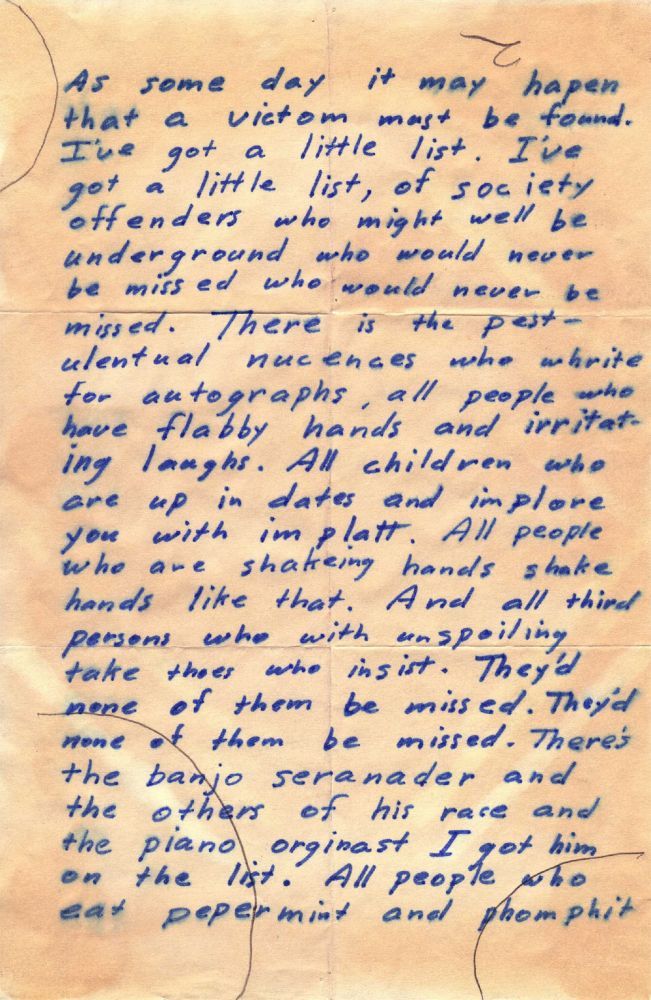 As some day it may hapen
that a victom must be found.
I've got a little list. I've
got a little list, of society
offenders who might well be
underground who would never
be missed who would never be
missed. There is the pest-
ulentual nucences who whrite
for autographs, all people who
have flabby hands and irritat-
ing laughs. All children who
are up in dates and implore
you with im platt. All people
who are shakeing hands shake
hands like that. And all third
persons who with unspoiling
take thoes who insist. They'd
none of them be missed. They'd
none of them be missed. There's
the banjo seranader and
the others of his race and
the piano orginast I got him
on the list. All people who
eat pepermint and phomphit